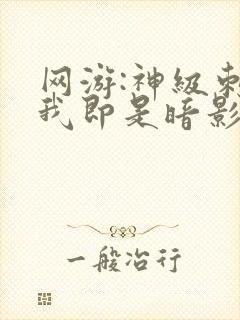 网游:神级刺
我即是暗影
一般冶行